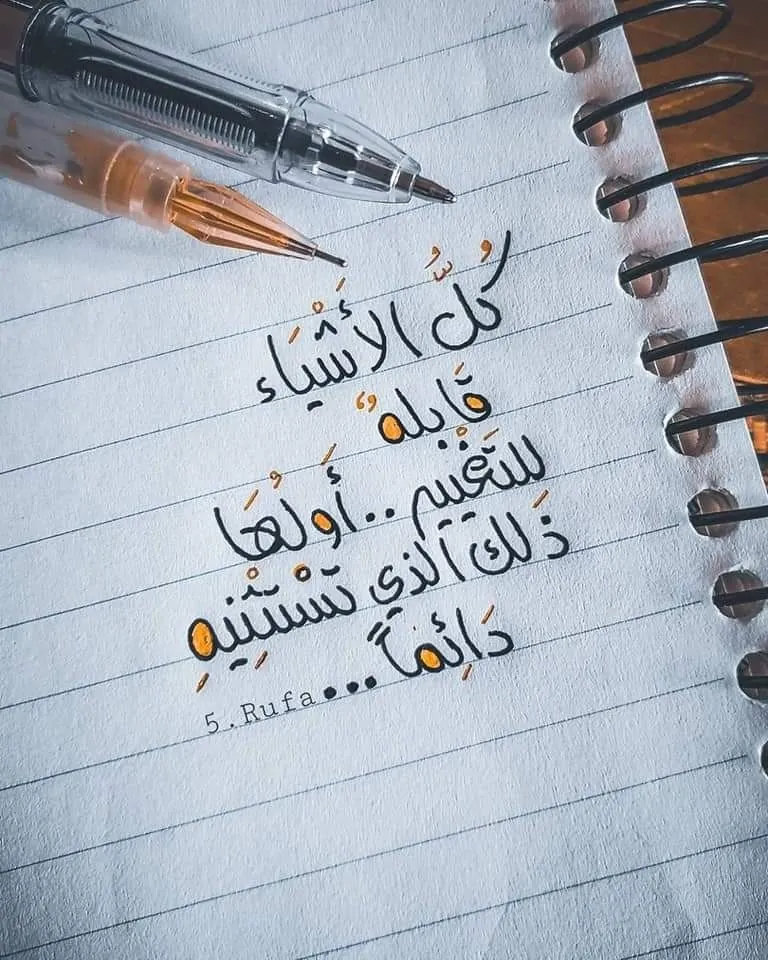 كُلُّ الأَشْيَاء
قَابلهٌ
للتَغْييير .. أَولُهَا
ذَلك الذي تَسْتَثْنِيهِ
دَائِماً ...
5.Rufa